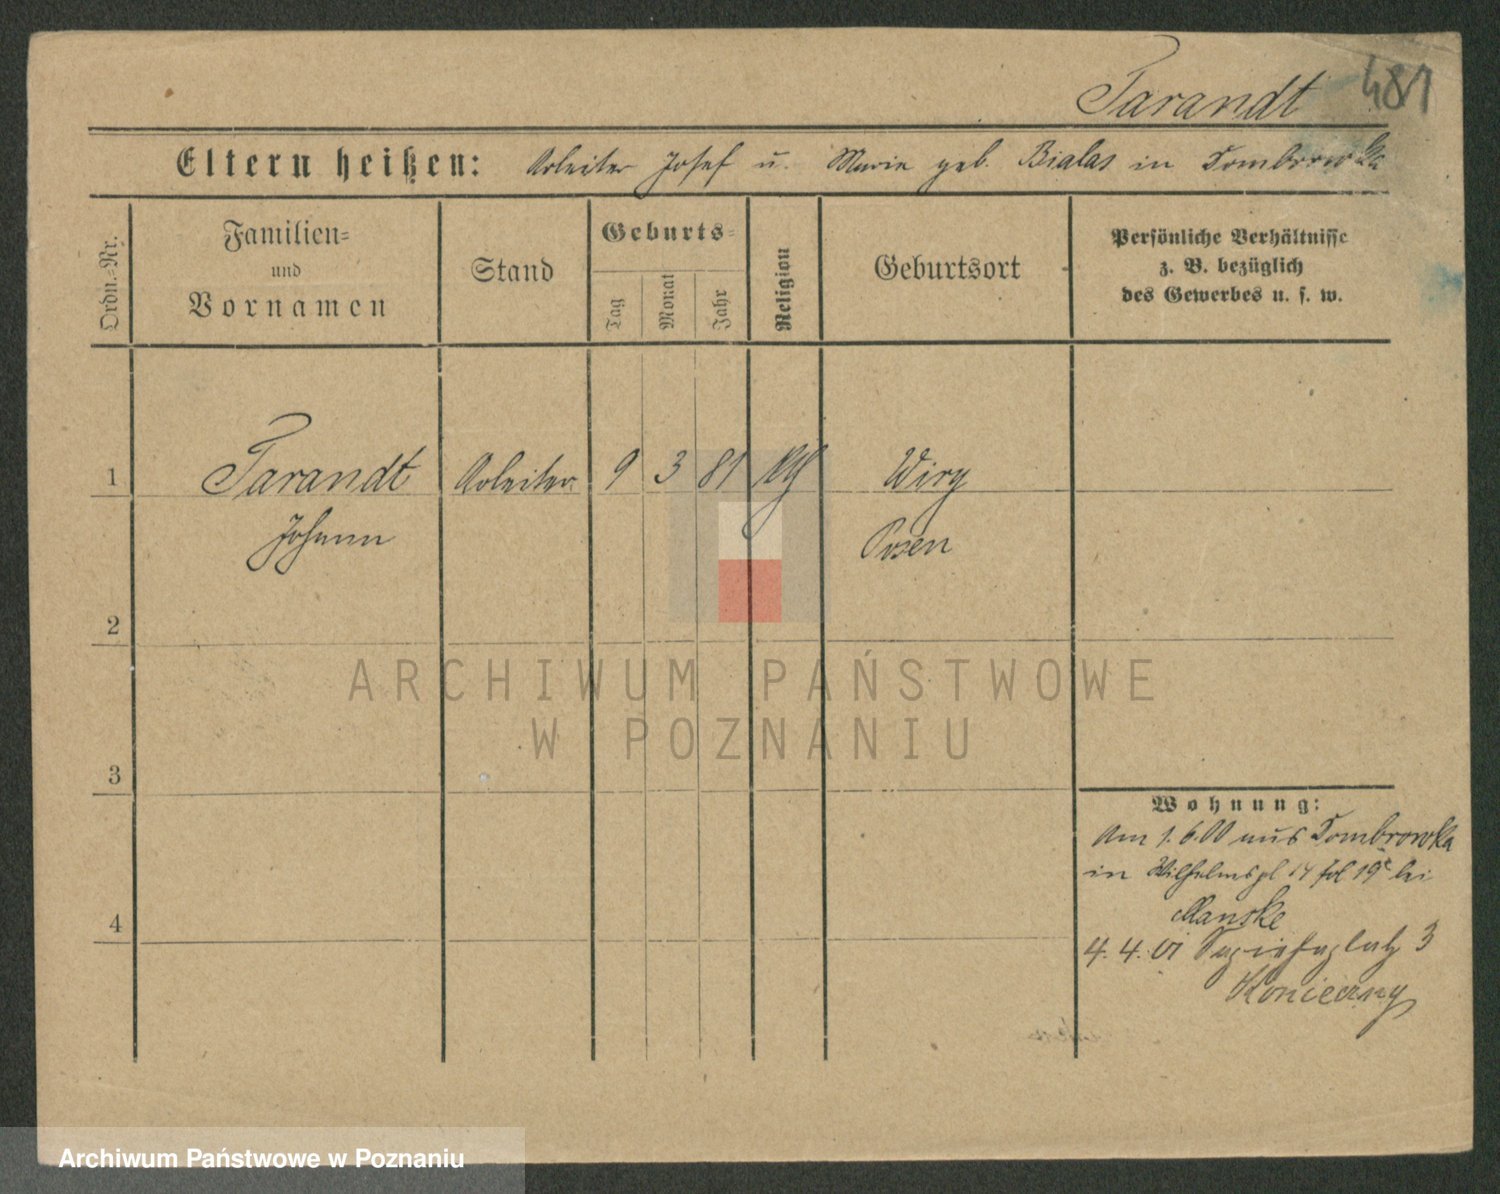 481
Tarandt
Eltern heißen: Arbeiter Josef u. Marie geb. Bialas in Dombrowka
Ordn.-Nr.
Familien- und Vornamen
Stand
Geburts-
Tag
Monat
Jahr
Religion
Geburtsort
Persönliche Verhältnisse
z. B. bezüglich
des Gewerbes u. s. w.
1 Tarandt Arbeiter 9 3 81 kth Wiry
Johann Posen
2
3
4
ARCHIWUM PAŃSTWOWE
W POZNANIU
Wohnung:
Am 1. 6.00 aus Dombrowka
in Wilhelmspl 14 19 bei
Manske
4. 4. 01 Sapiehaplatz 3
Konieczny
Archiwum Państwowe w Poznaniu